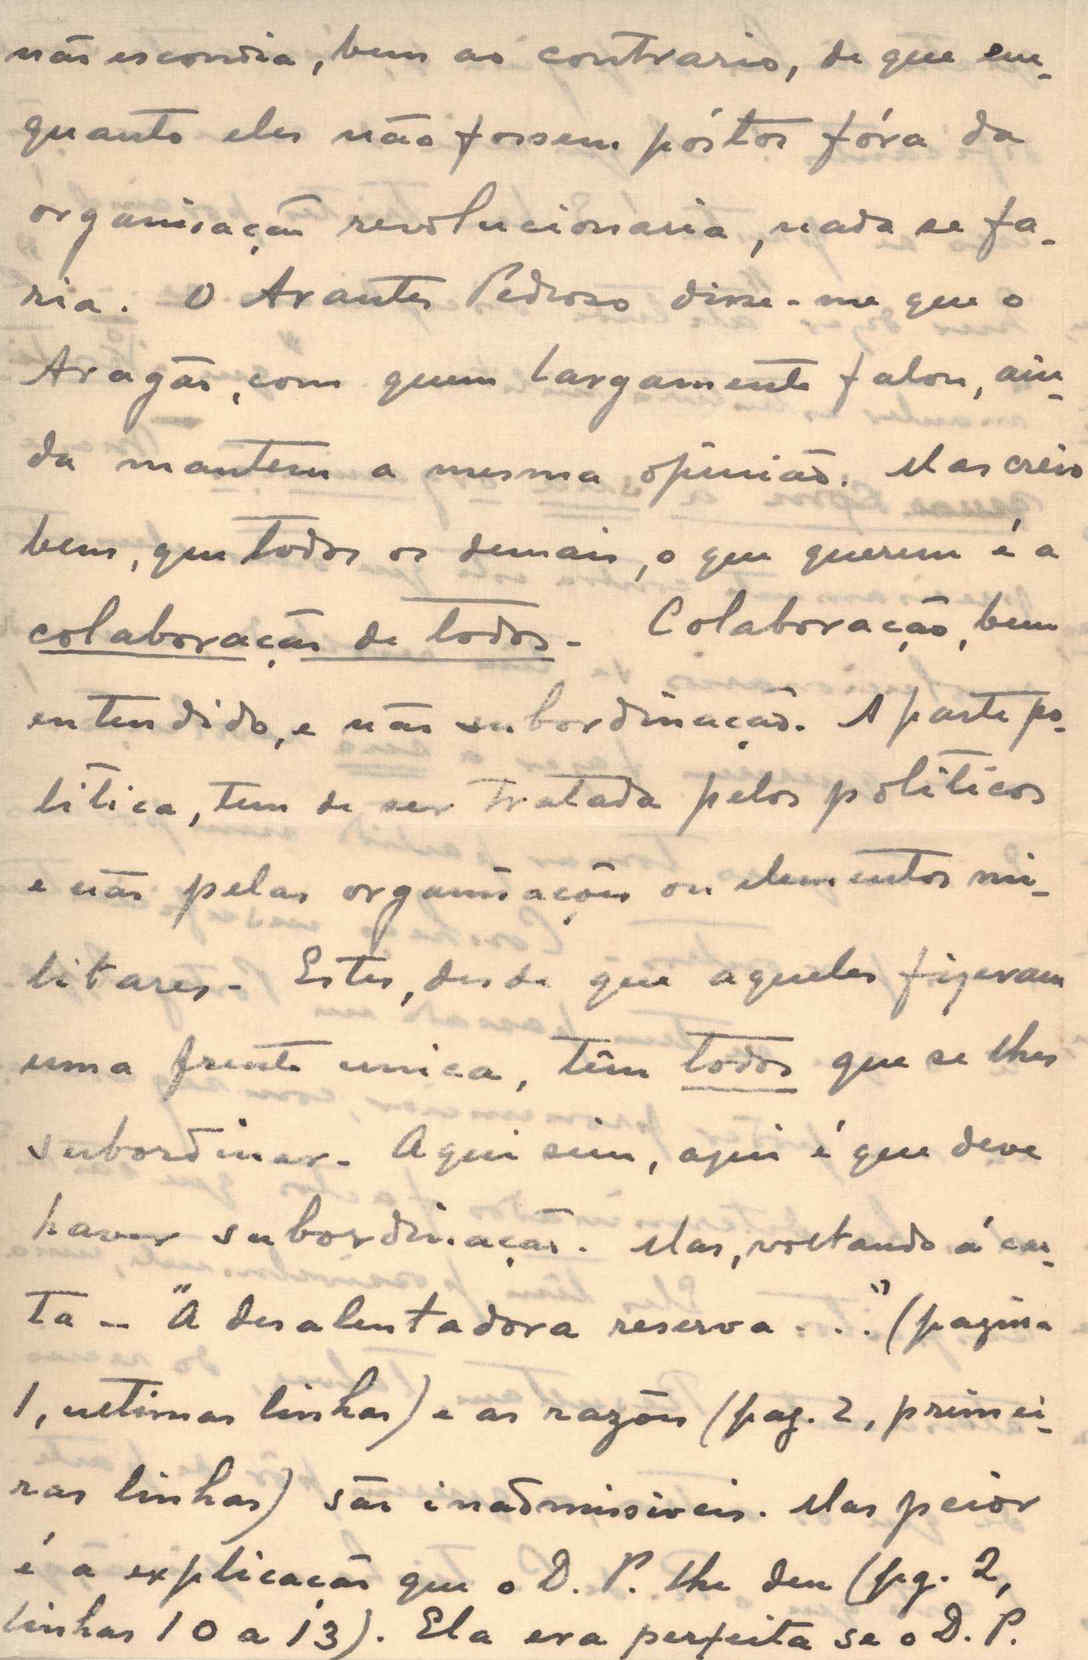 não escondia, bem ao contrario, de que em-
quanto eles não fossem póstos fóra da
organisação revolucionaria, nada se fa-
ria. O Arantes Pedroso disse-me que o
Aragão, com quem largamente falou, ain-
da mantem a mesma opinião. Mas creio
bem, que todos os demais, o que querem é a
colaboração de todos. Colaboração, bem
entendido, e não subordinação. A parte po-
litica, tem de ser tratada pelos politicos
e não pelas organisações ou elementos mi-
litares. Estes, desde que aqueles fizeram
uma frente unica, têm todos que se lhes
subordinar. Aqui sim, aqui é que deve
haver subordinação. Mas, voltando á car-
ta - "A desalentadora reserva..." (pagina
1, ultimas linhas) e as razões (pag. 2, primei-
ras linhas) são inadmissiveis. Mas peior
é a explicação que o D. P. lhe deu (pg. 2,
linhas 10 a 13). Ela era perfeita se o D. P.